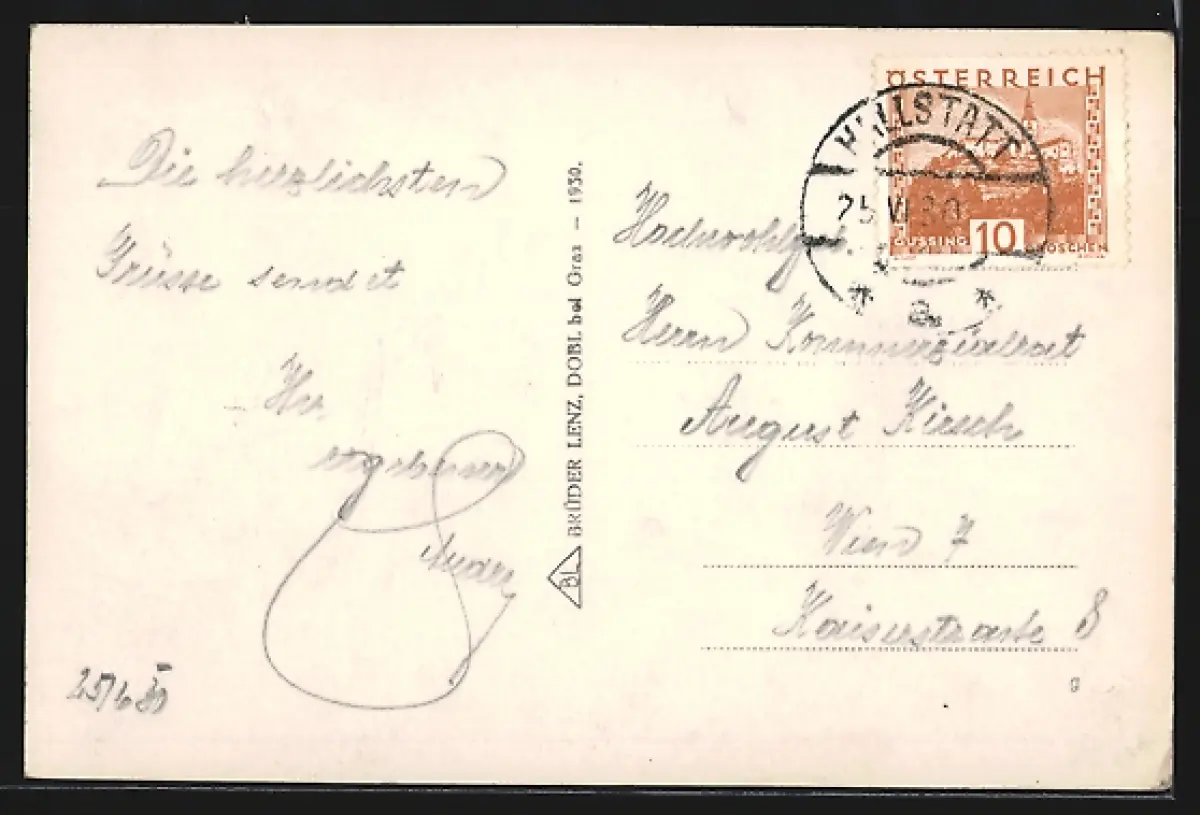 Die herzlichsten
Grüsse sendet
Ihr
ergebener
25/6 30
BRÜDER LENZ, DOBL bei Graz — 1930.
BL
ÖSTERREICH
GÜSSING 10 GROSCHEN
HALLSTATT
25 VI 30
a
Hochwohlgeb.
Herrn Kommerzialrat
August Kirsch
Wien 7
Kaiserstraße 8